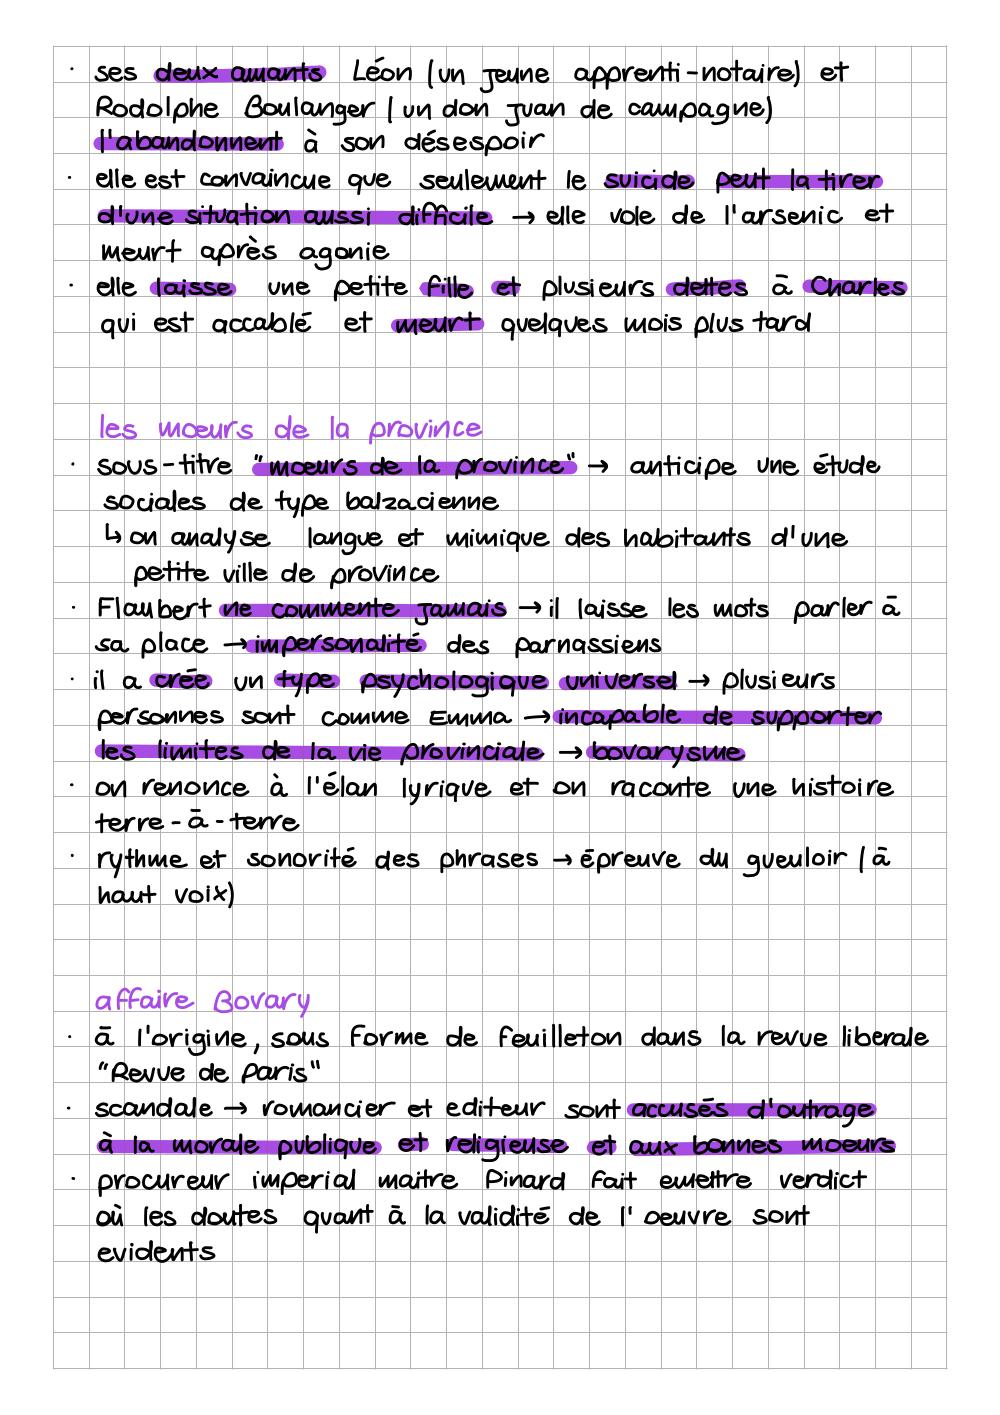 · ses deux amants Léon (un jeune apprenti-notaire) et
Rodolphe Boulanger (un don Juan de campagne)
l'abandonnent à son désespoir
· elle est convaincue que seulement le suicide peut la tirer
d'une situation aussi difficile → elle vole de l'arsenic et
meurt après agonie
· elle laisse une petite fille et plusieurs dettes ā Charles
qui est accablé et meurt quelques mois plus tard
les mœurs de la province
· sous-titre "mœurs de la province" → anticipe une étude
sociales de type balzacienne
↳ on analyse langue et mimique des habitants d'une
petite ville de province
· Flaubert ne commente jamais → il laisse les mots parler ā
sa place → impersonalité des parnassiens
· il a crée un type psychologique universel → plusieurs
personnes sont comme Emma → incapable de supporter
les limites de la vie provinciale → bovarysme
· on renonce à l'élan lyrique et on raconte une histoire
terre-ā-terre
· rythme et sonorité des phrases → épreuve du gueuloir (ā
haut voix)
affaire Bovary
· ā l'origine, sous forme de feuilleton dans la revue liberale
"Revue de Paris"
· scandale → romancier et editeur sont accusés d'outrage
à la morale publique et religieuse et aux bonnes moeurs
· procureur imperial maitre Pinard fait emettre verdict
où les doutes quant ā la validité de l'oeuvre sont
evidents